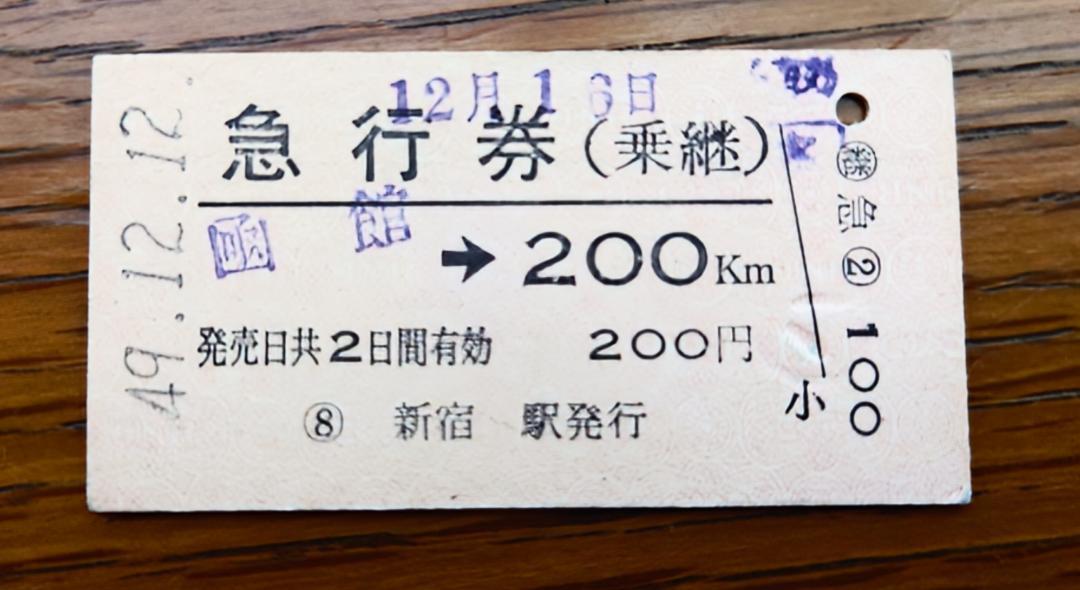 49.12.12.
12月16日
急行券(乗継)
函館
➔200Km
発売日共2日間有効 200円
⑧ 新宿 駅発行
小
急②100